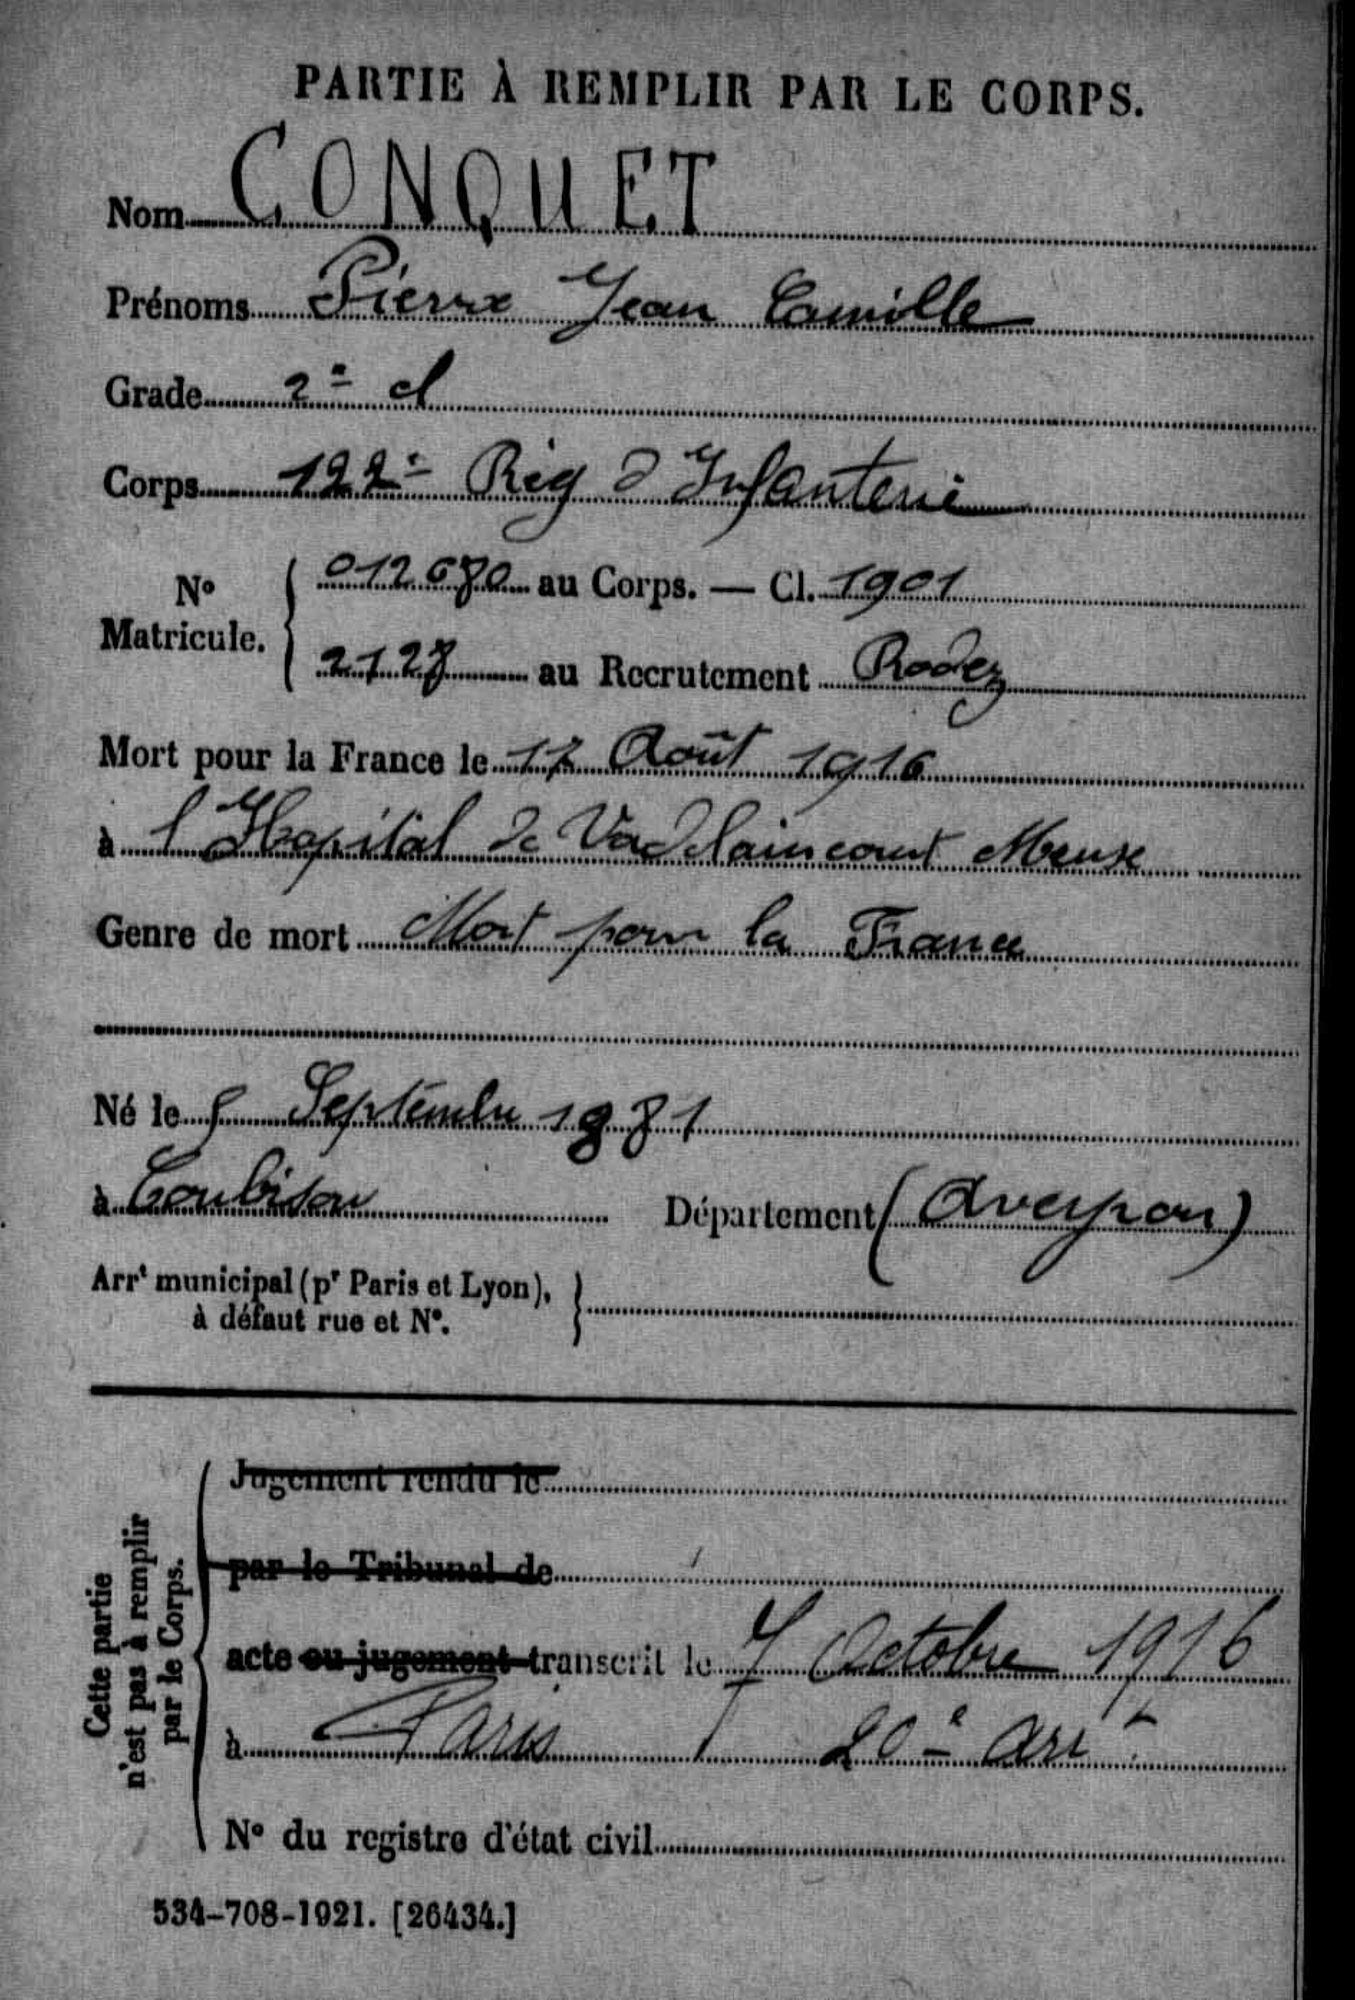 PARTIE À REMPLIR PAR LE CORPS.
Nom CONQUET
Prénoms Pierre Jean Camille
Grade 2e cl
Corps 122e Rég d'Infanterie
No Matricule. 012680 au Corps. — Cl. 1901
2128 au Recrutement Rodez
Mort pour la France le 17 Août 1916
à l'Hopital de Vadelaincourt Meuse
Genre de mort Mort pour la France
Né le 5 Septembre 1881
à Coubisou Département (Aveyron)
Arrt municipal (pr Paris et Lyon),
à défaut rue et No.
Cette partie
n'est pas à remplir
par le Corps.
Jugement rendu le
par le Tribunal de
acte ou jugement transcrit le 7 Octobre 1916
à Paris 20e arrt
No du registre d'état civil
534-708-1921. [26434.]